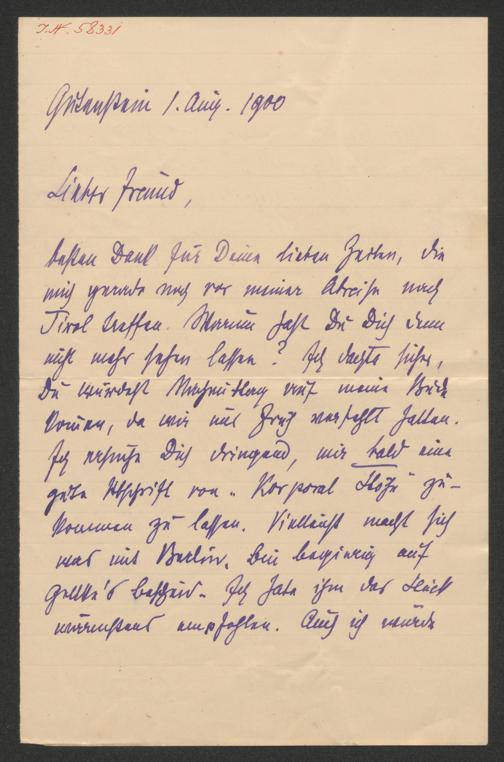 I.N. 58331
Gutenstein 1. Aug. 1900
Lieber Freund,
besten Dank für Deine lieben Zeilen, die
mich gerade noch vor meiner Abreise nach
Tirol treffen. Warum hast Du Dich denn
nicht mehr sehen lassen? Ich dachte sicher,
Du würdest Nachmittag auf meine Bude
komen, da wir uns früh verfehlt hatten.
Ich ersuche Dich dringend, mir bald eine
gute Abschrift von "Korporal Stöhr" zu-
kommen zu lassen. Vielleicht macht sich
was mit Berlin. Bin begierig auf
Gettke's Bescheid. Ich habe ihm das Stück
wärmstens empfohlen. Auch ich würde